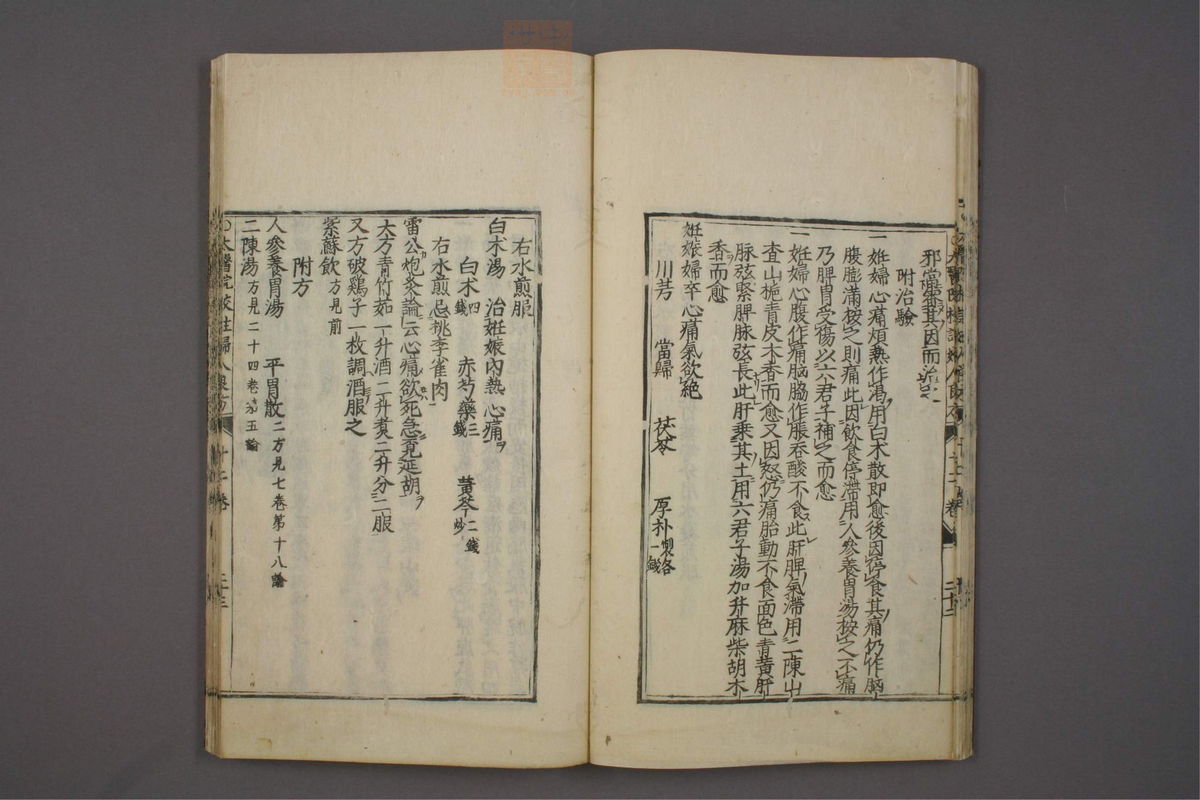 邪當審其因而治之
附治驗
一妊婦心痛煩熱作渴用白术散即愈後因停食其痛仍作腦
腹膨滿按之則痛此因飲食停滯用人參養胃湯按之不痛
乃脾胃受傷以六君子補之而愈
一妊婦心腹作痛脑脇作脹吞酸不食此肝脾氣滯用二陳山
查山梔青皮木香而愈又因怒仍痛胎動不食面色青黃肝
脉弦緊脾脉弦長此肝乘其土用六君子湯加升麻柴胡木
香而愈
妊娠婦卒心痛氣欲絶
川芎 當歸 茯苓 厚朴製各一錢
右水煎服
白木湯 治妊娠內熱心痛
白木四錢 赤芍藥三錢 黃芩炒二錢
右水煎忌桃李雀肉
雷公炮灸論云心痛欲死急覓延胡
大方青竹茹一升酒二升煑二升分二服
又方破鷄子一枚調酒服之
紫蘇飲方見前
附方
人參養胃湯 平胃散二方見七卷第十八論
二陳湯方見二十四卷第五論
太醫院校註婦人良方 十二卷 二十三